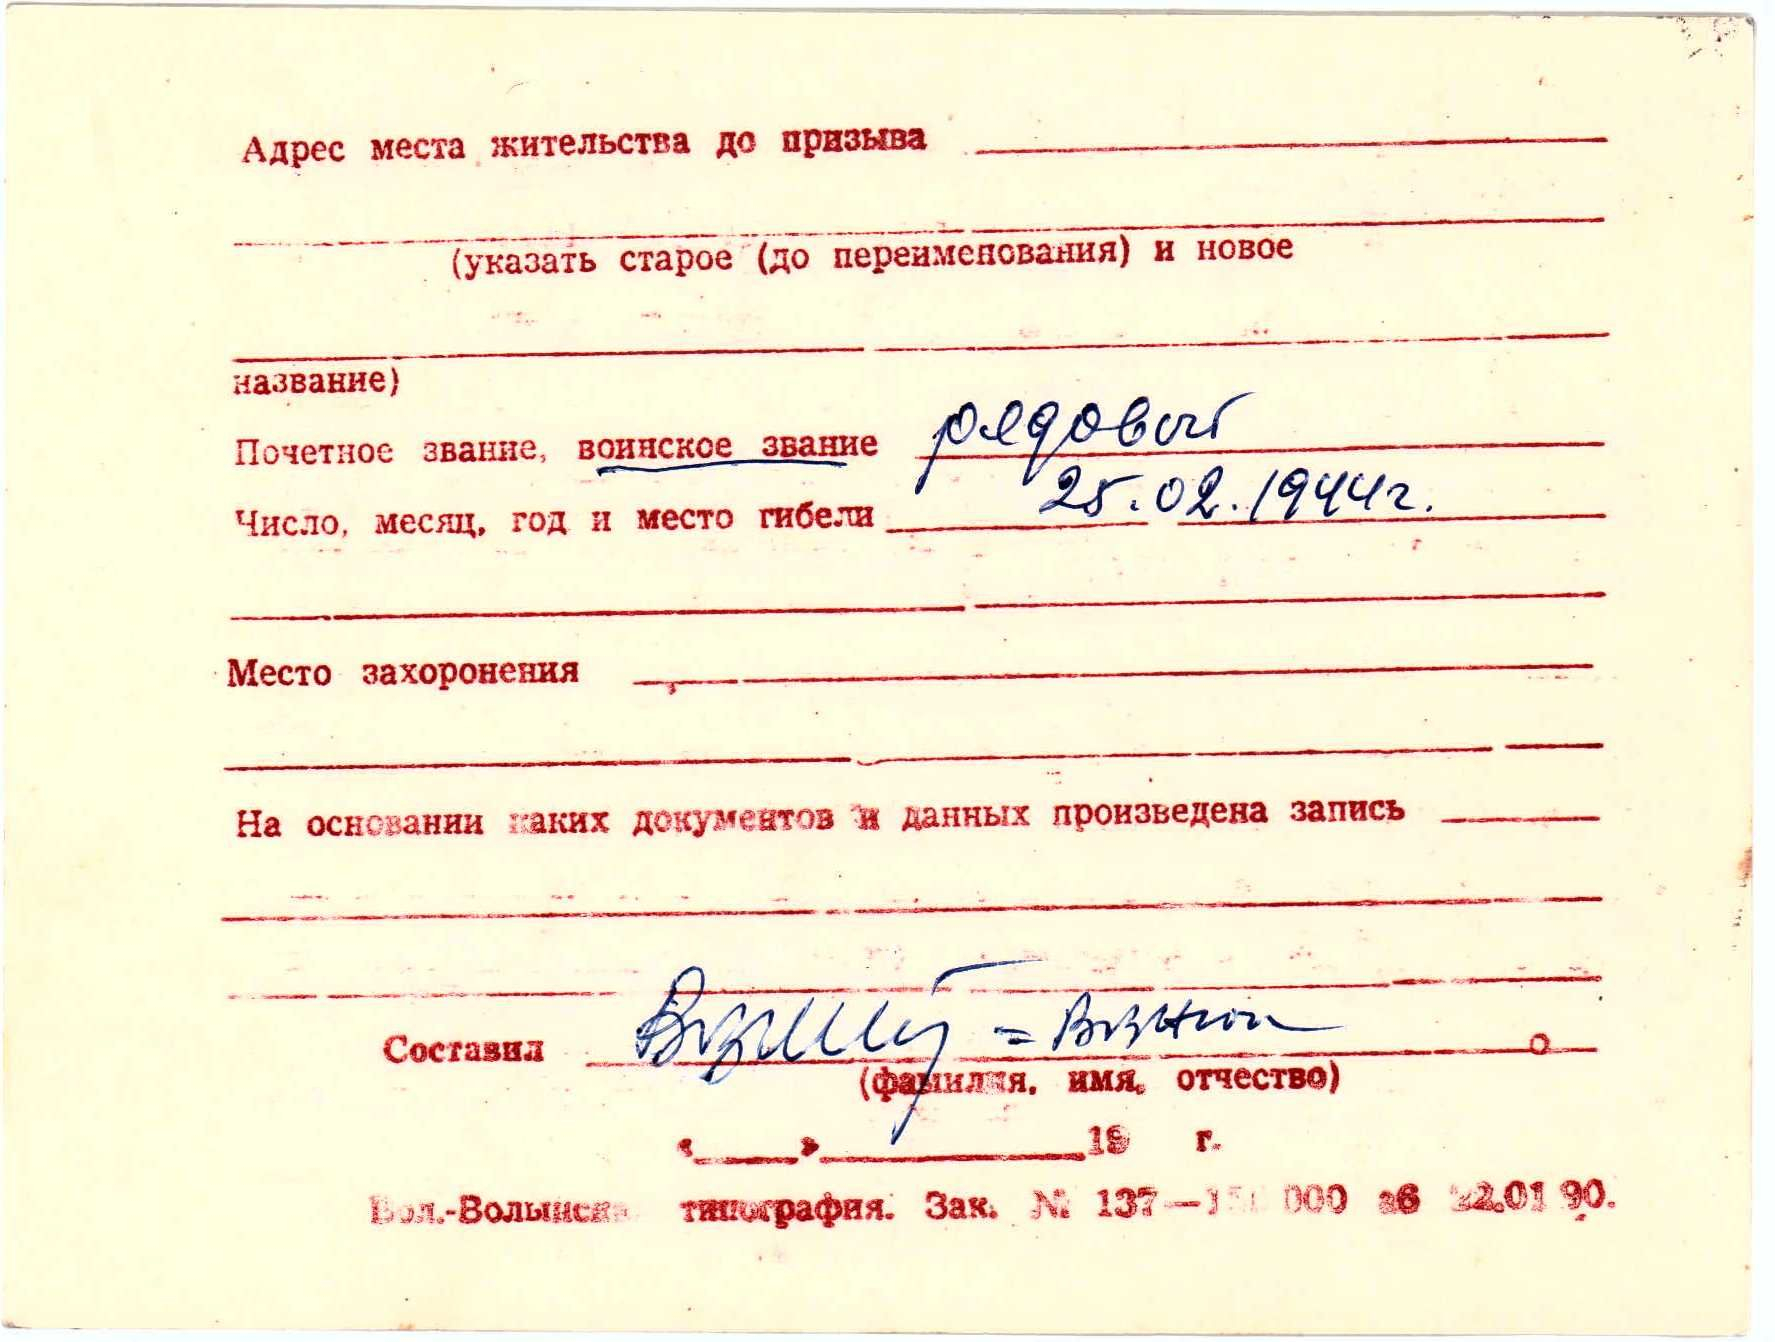 Адрес места жительства до призыва
(указать старое (до переименования) и новое
название)
Почетное звание, воинское звание рядовой
Число, месяц, год и место гибели 25.02.1944г.
Место захоронения
На основании каких документов и данных произведена запись
Составил
(фамилия, имя, отчество)
«____»__________19 г.
Вол.-Волынская типография. Зак. № 137— 000 2.01 90.